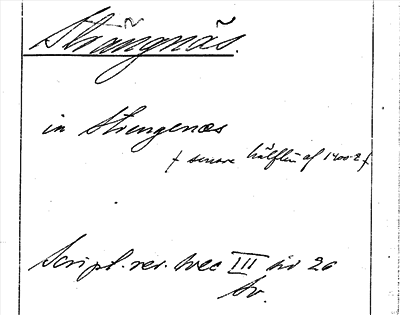 Strängnäs.
in Strengenæs
( senare hälften af 1400-t )
Script. rer. svec III sid 26
Sv.